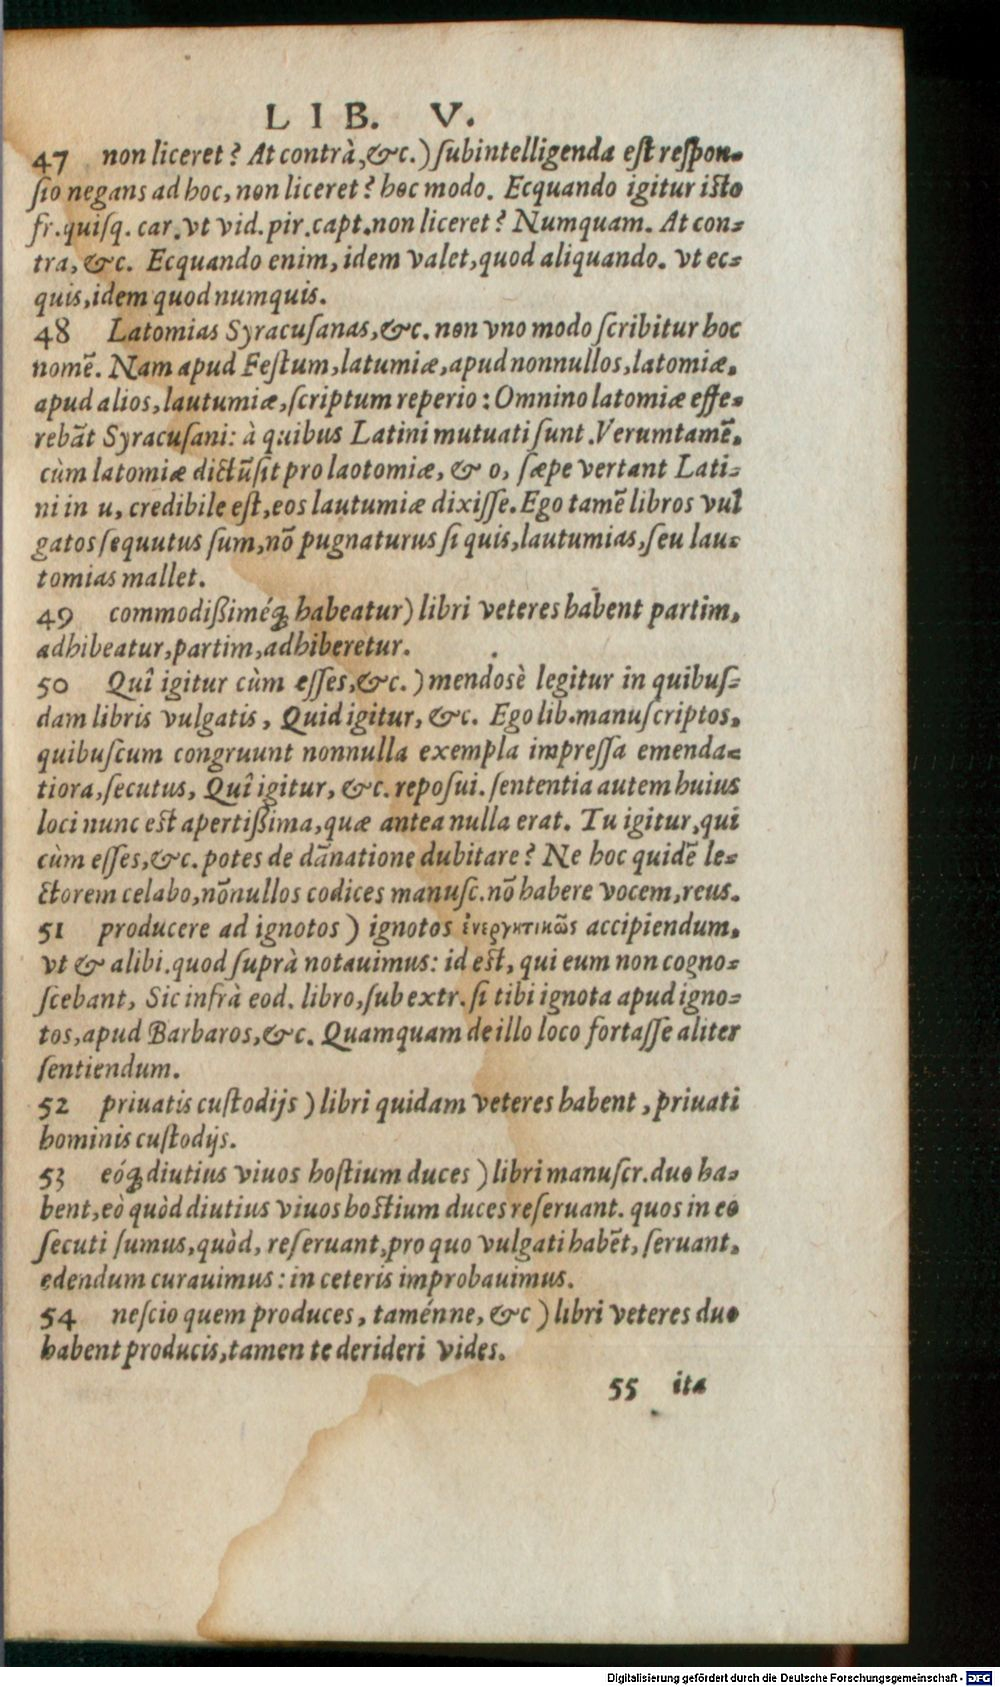 LIB. V.
47 non liceret? At contrà, &c.) ſubintelligenda eſt reſpon-
ſio negans ad hoc, non liceret? hoc modo. Ecquando igitur iſto
fr. quiſq. car. vt vid. pir. capt. non liceret? Numquam. At con-
tra, &c. Ecquando enim, idem valet, quod aliquando. vt ec-
quis, idem quod numquis.
48 Latomias Syracuſanas, &c. non vno modo ſcribitur hoc
nomē. Nam apud Feſtum, latumiæ, apud nonnullos, latomiæ,
apud alios, lautumiæ, ſcriptum reperio: Omnino latomiæ effe-
rebāt Syracuſani: à quibus Latini mutuati ſunt. Verumtamē,
cùm latomiæ dictū ſit pro laotomiæ, & o, ſæpe vertant Lati-
ni in u, credibile eſt, eos lautumiæ dixiſſe. Ego tamē libros vul
gatos ſequutus ſum, nō pugnaturus ſi quis, lautumias, ſeu lau-
tomias mallet.
49 commodißiméq; habeatur) libri veteres habent partim,
adhibeatur, partim, adhiberetur.
50 Quî igitur cùm eſſes, &c.) mendosè legitur in quibuſ-
dam libris vulgatis, Quid igitur, &c. Ego lib. manuſcriptos,
quibuſcum congruunt nonnulla exempla impreſſa emenda-
tiora, ſecutus, Quî igitur, &c. repoſui. ſententia autem huius
loci nunc eſt apertißima, quæ antea nulla erat. Tu igitur, qui
cùm eſſes, &c. potes de dānatione dubitare? Ne hoc quidē le-
ctorem celabo, nōnullos codices manuſc. nō habere vocem, reus.
51 producere ad ignotos) ignotos ἐνεργητικῶς accipiendum,
vt & alibi. quod ſuprà notauimus: id eſt, qui eum non cogno-
ſcebant, Sic infrà eod. libro, ſub extr. ſi tibi ignota apud igno-
tos, apud Barbaros, &c. Quamquam de illo loco fortaſſe aliter
ſentiendum.
52 priuatis cuſtodijs) libri quidam veteres habent, priuati
hominis cuſtodijs.
53 eóq; diutius viuos hoſtium duces) libri manuſcr. duo ha-
bent, eò quòd diutius viuos hoſtium duces reſeruant. quos in eo
ſecuti ſumus, quòd, reſeruant, pro quo vulgati habēt, ſeruant,
edendum curauimus: in ceteris improbauimus.
54 neſcio quem produces, taménne, &c) libri veteres duo
habent producis, tamen te derideri vides.
55 ita
Digitalisierung gefördert durch die Deutsche Forschungsgemeinschaft - DFG